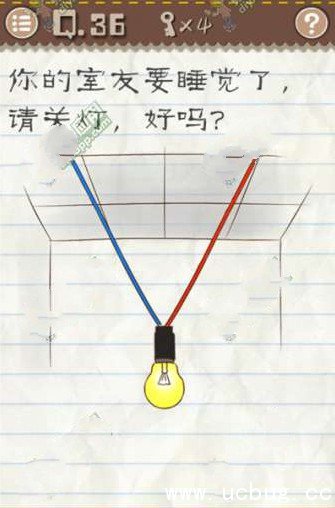 Q.36 ×4 ?
你的室友要睡觉了，
请关灯，好吗？